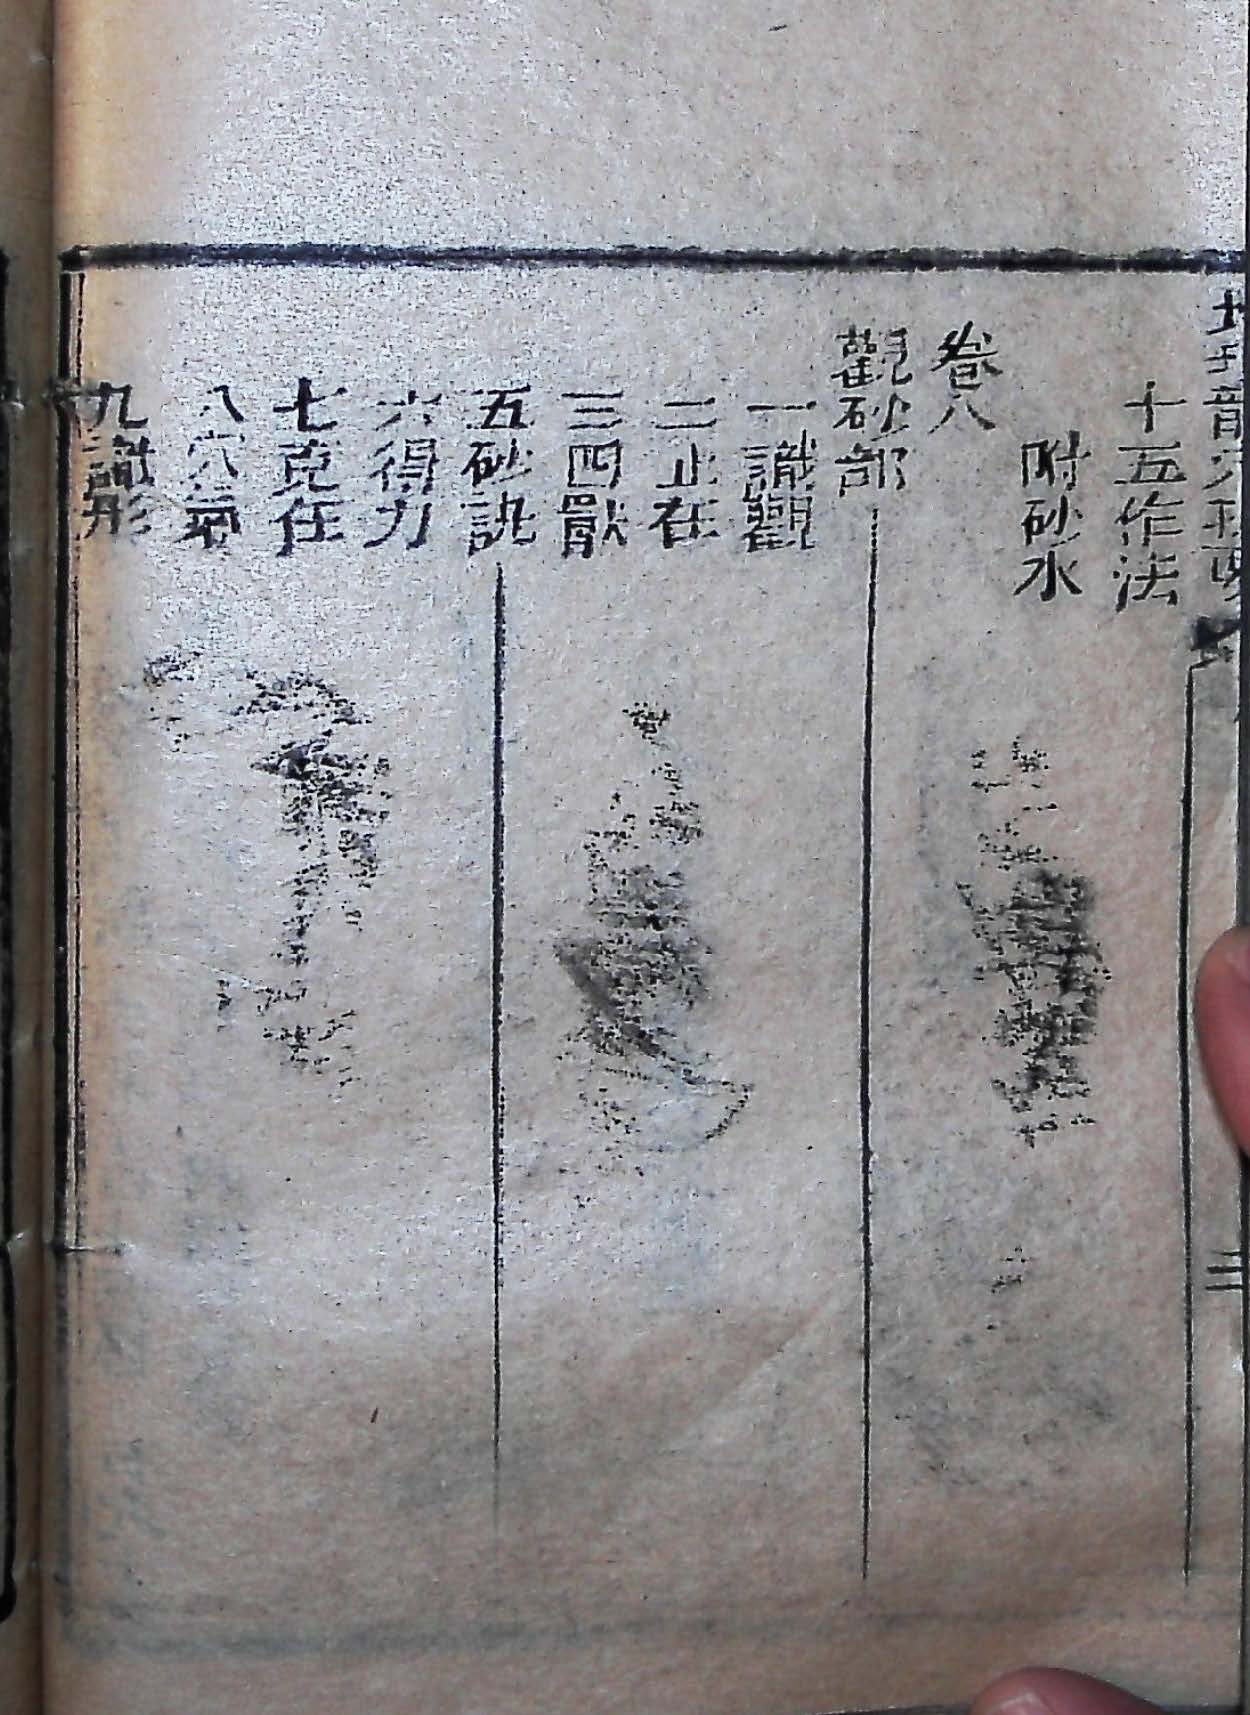 十五作法
附砂水
卷八
觀砂部
一識觀
二止在
三四獸
五砂訣
六得力
七克在
八穴氣
九識形
二